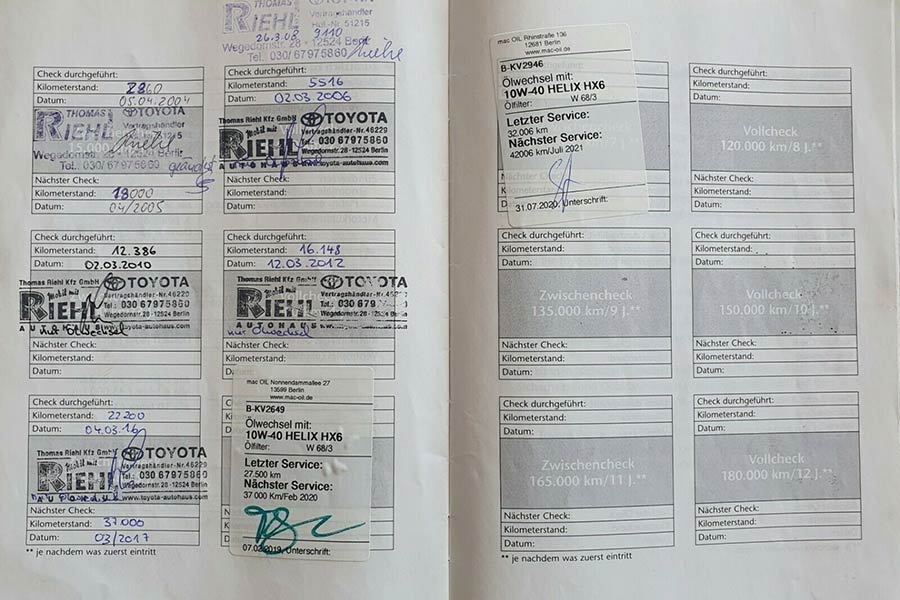 THOMAS
RIEHL
Vertragshändler
Hdl.-Nr. 51215
26.3.08 9110
Wegedornstr. 28 · 12524 Berlin
Tel. 030/67975860
Check durchgeführt:
Kilometerstand: 2860
Datum: 05.04.2004
THOMAS
RIEHL
TOYOTA
Vertragshändler
Wegedornstr. 28 · 12524 Berlin
Tel. 030/67975860
geändert
Nächster Check:
Kilometerstand: 18000
Datum: 04/2005
Check durchgeführt:
Kilometerstand: 5516
Datum: 02.03.2006
Thomas Riehl Kfz GmbH
Mobil mit
RIEHL
AUTOHAUS
TOYOTA
Vertragshändler-Nr.46229
Tel.: 030 67975860
Wegedornstr.28·12524 Berlin
www.toyota-autohaus.com
Nächster Check:
Kilometerstand:
Datum:
Check durchgeführt:
Kilometerstand: 12.386
Datum: 02.03.2010
Thomas Riehl Kfz GmbH
Mobil mit
RIEHL
AUTOHAUS
TOYOTA
Vertragshändler-Nr.46229
Tel.: 030 67975860
Wegedornstr.28·12524 Berlin
www.toyota-autohaus.com
nur Ölwechsel
Nächster Check:
Kilometerstand:
Datum:
Check durchgeführt:
Kilometerstand: 16.148
Datum: 12.03.2012
Thomas Riehl Kfz GmbH
Mobil mit
RIEHL
AUTOHAUS
TOYOTA
Vertragshändler-Nr.46229
Wegedornstr.28·12524 Berlin
www.toyota-autohaus.com
nur Ölwechsel
Nächster Check:
Kilometerstand:
Check durchgeführt:
Kilometerstand: 22200
Datum: 04.03.16
Thomas Riehl Kfz GmbH
Mobil mit
RIEHL
TOYOTA
Vertragshändler-Nr.46229
Tel.: 030 67975860
Wegedornstr.28·12524 Berlin
www.toyota-autohaus.com
Nächster Check:
Kilometerstand: 37.000
Datum: 03/2017
** je nachdem was zuerst eintritt
mac OIL Nonnendammallee 27
13599 Berlin
www.mac-oil.de
B-KV2649
Ölwechsel mit:
10W-40 HELIX HX6
Ölfilter: W 68/3
Letzter Service:
27.500 km
Nächster Service:
37 000 Km/Feb 2020
07.02.2019, Unterschrift:
mac OIL Rhinstraße 136
12681 Berlin
www.mac-oil.de
B-KV2946
Ölwechsel mit:
10W-40 HELIX HX6
Ölfilter: W 68/3
Letzter Service:
32.006 km
Nächster Service:
42006 km/Juli 2021
31.07.2020, Unterschrift:
Check durchgeführt:
Kilometerstand:
Datum:
Vollcheck
120.000 km/8 J.**
Nächster Check:
Kilometerstand:
Datum:
Check durchgeführt:
Kilometerstand:
Datum:
Zwischencheck
135.000 km/9 J.**
Nächster Check:
Kilometerstand:
Datum:
Check durchgeführt:
Kilometerstand:
Datum:
Vollcheck
150.000 km/10 J.**
Nächster Check:
Kilometerstand:
Datum:
Check durchgeführt:
Kilometerstand:
Datum:
Zwischencheck
165.000 km/11 J.**
Nächster Check:
Kilometerstand:
Datum:
** je nachdem was zuerst eintritt
Check durchgeführt:
Kilometerstand:
Datum:
Vollcheck
180.000 km/12 J.**
Nächster Check:
Kilometerstand:
Datum: